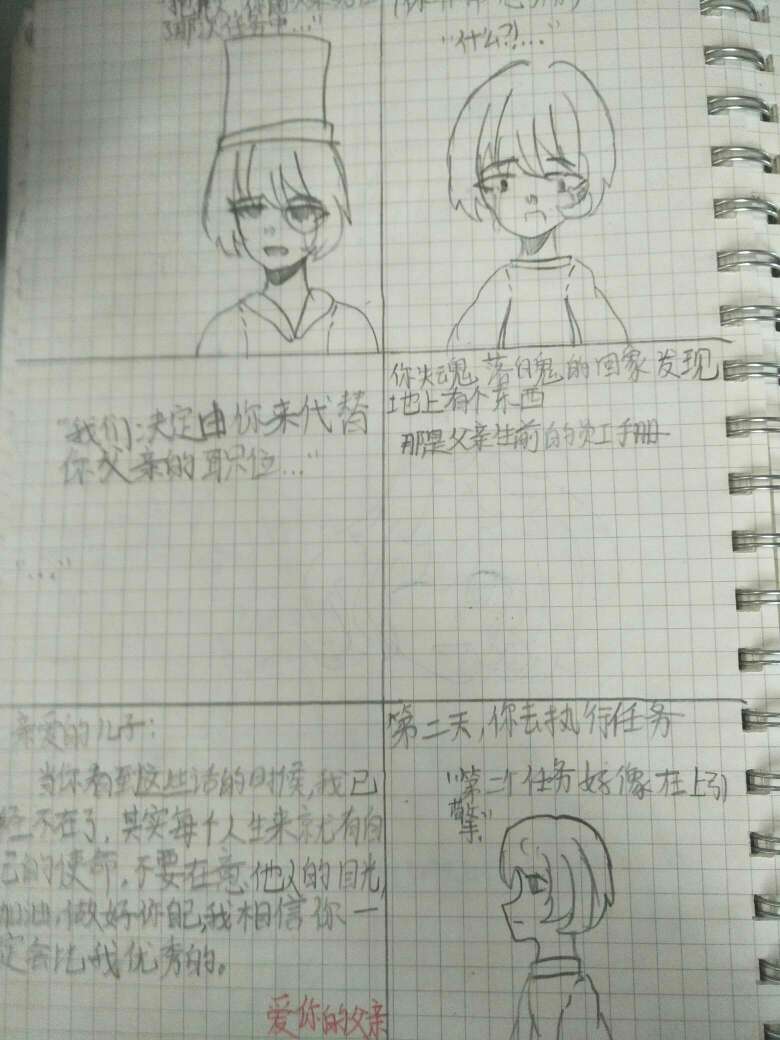 "什么?!..."
"我们决定由你来代替
你父亲的职位..."
"..."
你失魂落魄的回家发现
地上有个东西
那是父亲生前的员工手册
亲爱的儿子:
当你看到这些话的时候,我已
经不在了,其实每个人生来就有自
己的使命,不要在意他人的目光,
加油,做好你自己,我相信你一
定会比我优秀的。
爱你的父亲
第二天,你去执行任务
"第二个任务好像在上引
擎"